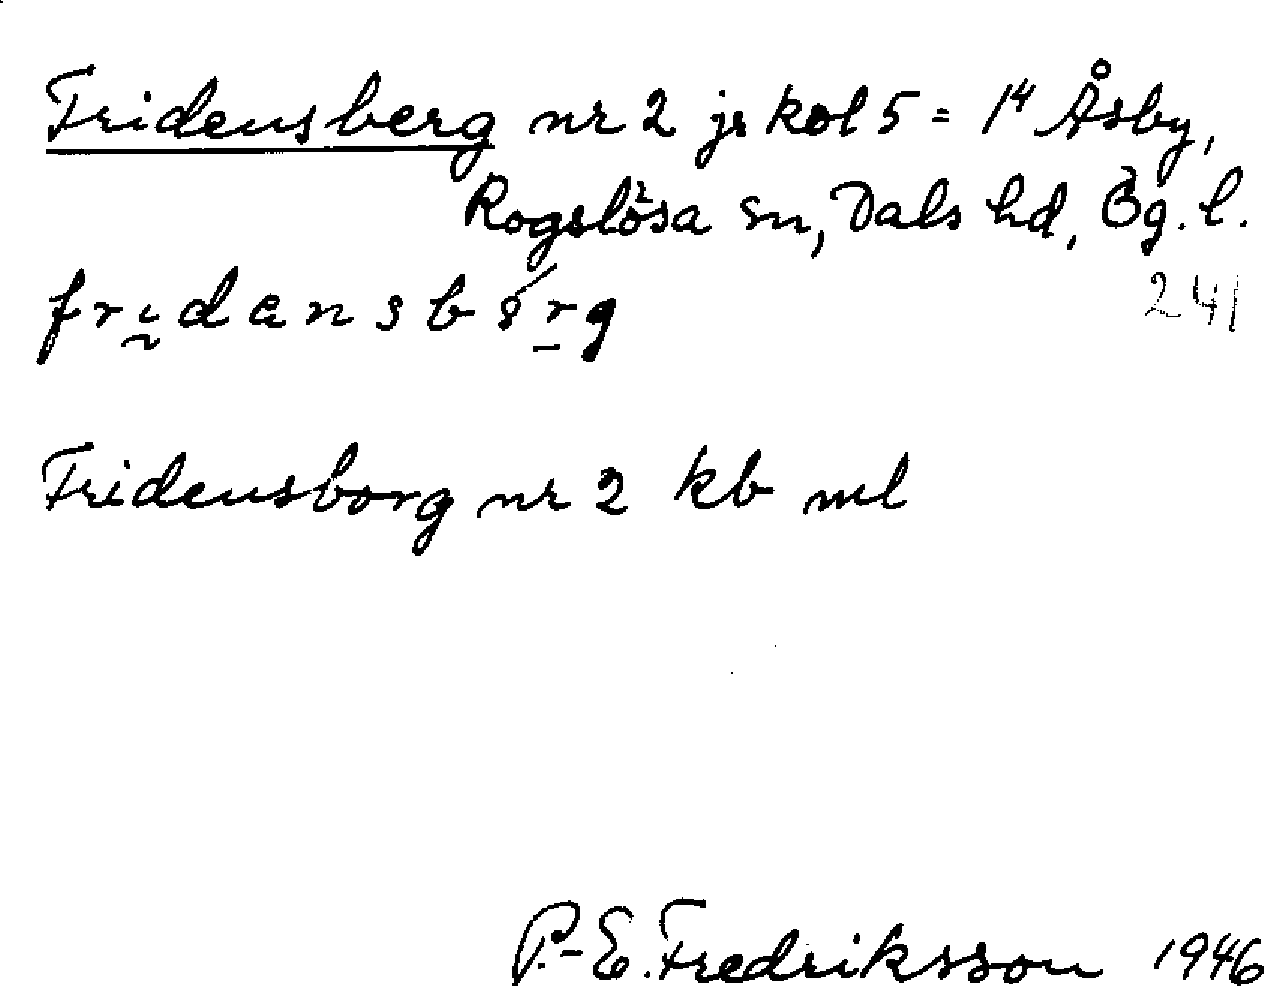 Fridensberg nr 2 jr kol 5 = 1⁴ Åsby,
Rogslösa sn, Dals hd, Ög. l.
241
Fridensborg nr 2 kb ml
P.-E. Fredriksson 1946